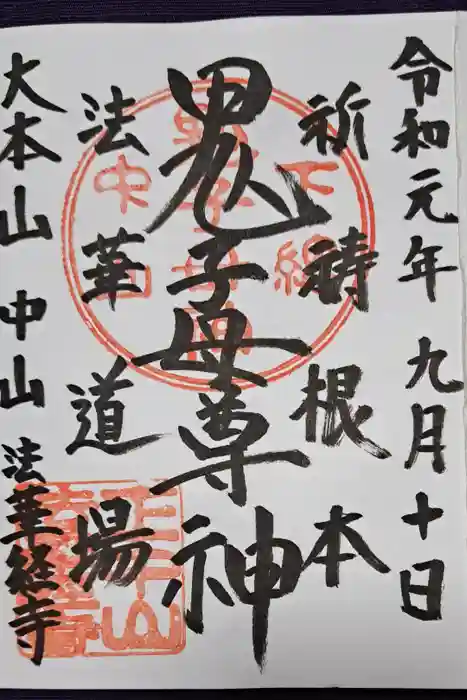 令和元年 九月十日
祈禱根本
鬼子母尊神
法華道場
大本山 中山 法華経寺
下総
中山